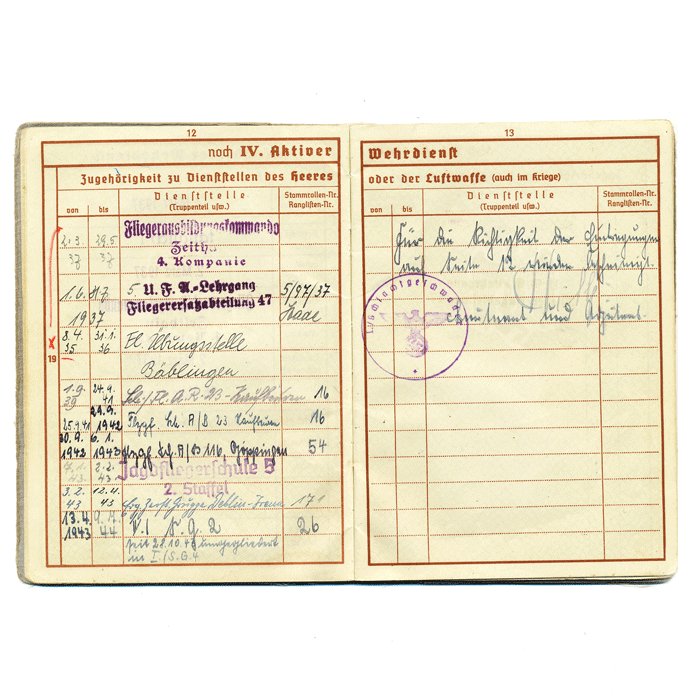 12
noch IV. Aktiver
Zugehörigkeit zu Dienststellen des Heeres
von
bis
Dienststelle
(Truppenteil usw.)
Stammrollen-Nr.
Ranglisten-Nr.
2.3. 37
29.5 37
Fliegerausbildungskommando
Zeithain
4. Kompanie
1.6. 1937
5 U. F. A.-Lehrgang
Fliegerersatzabteilung 47
5/97/37
19
8.4. 35
31.1. 36
Fl. Übungsstelle
Böblingen
1.9. 39
24.9. 41
A.R. 23 - Kaufbeuren
16
25.9.41
29.9. 1942
A/B 23 Kaufbeuren
16
30.9. 1942
6.1. 1943
A/B 116, Göppingen
54
7.1. 43
2.2. 43
Jagdfliegerschule 5
2. Staffel
3.2. 43
12.4. 43
Deblin-Irena
13.4. 1943
44
26
seit 28.10.43 umgegliedert
in I./S.G.4
13
Wehrdienst
oder der Luftwaffe (auch im Kriege)
von
bis
Dienststelle
(Truppenteil usw.)
Stammrollen-Nr.
Ranglisten-Nr.
Für die Richtigkeit der Eintragungen
auf Seite 12 worden bescheinigt.
Leutnant und Adjutant.